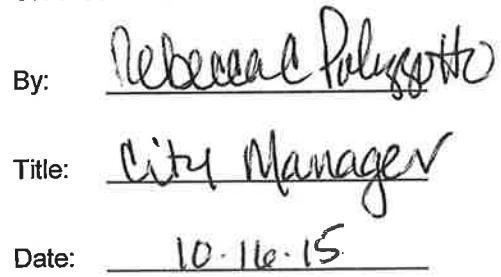 By: Rebecca C Polizzotto
Title: City Manager
Date: 10.16.15